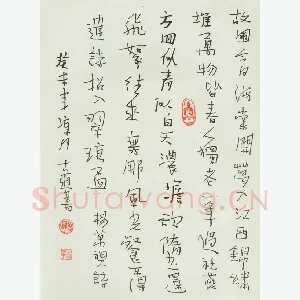 故園今日海棠開夢入江西錦繡
堆萬物皆春人獨老一年過社燕
方回似青似白天濃淡欲墮還
飛絮往來無那風光餐不得
遣詩招入翠瓊杯楊萬里詩
書
Shufawang.CN